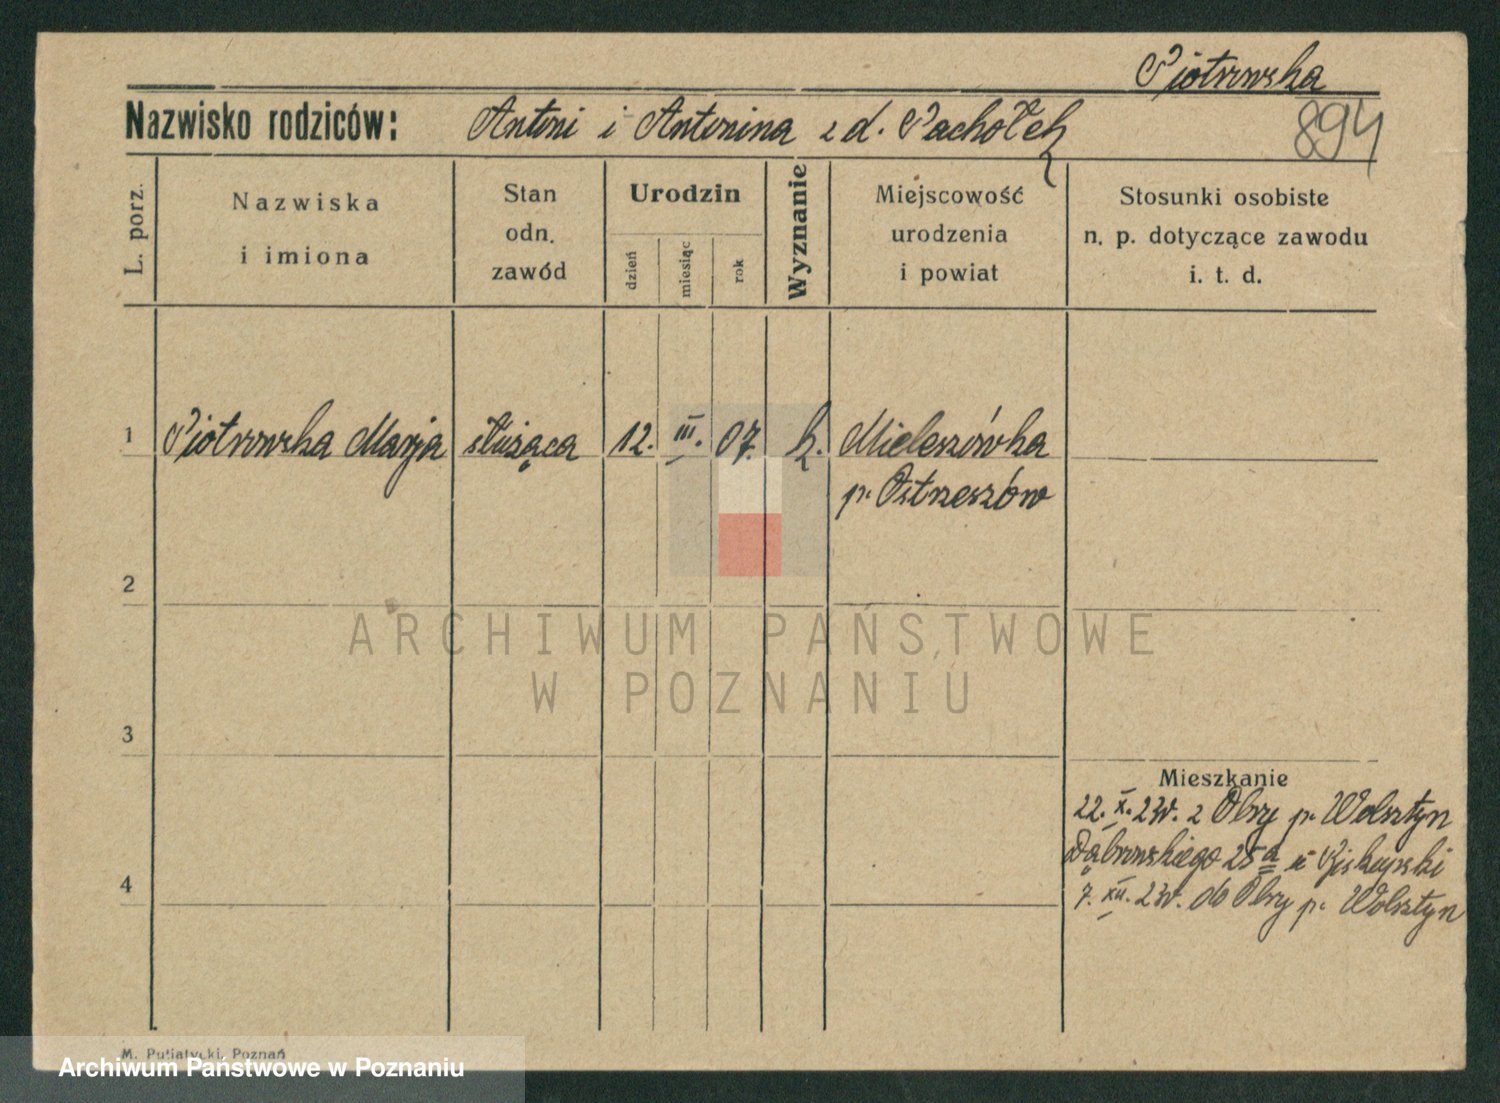 Piotrowska
Nazwisko rodziców: Antoni i Antonina z d. Pachołek
894
L. porz.
Nazwiska
i imiona
Stan
odn.
zawód
Urodzin
dzień
miesiąc
rok
Wyznanie
Miejscowość
urodzenia
i powiat
Stosunki osobiste
n. p. dotyczące zawodu
i. t. d.
1 Piotrowska Marja służąca 12. III. 07. k. Mieleszówka
p. Ostrzeszów
2
ARCHIWUM PAŃSTWOWE
W POZNANIU
3
Mieszkanie
22. X. 23r. z Obry p. Wolsztyn
Dąbrowskiego 25a u
4
7. XII. 23r. do Obry p. Wolsztyn
M. Putiatycki, Poznań
Archiwum Państwowe w Poznaniu